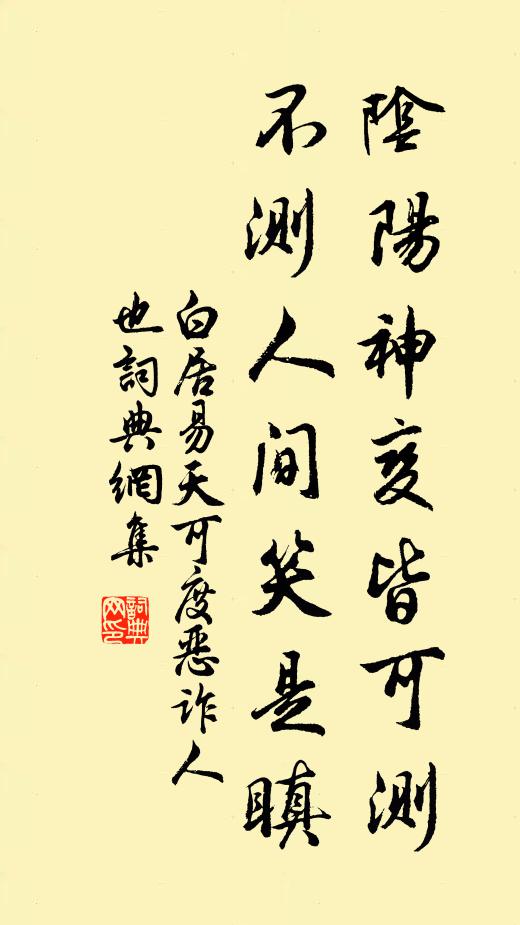 陰陽神變皆可測
不測人間笑是瞋
白居易天可度惡詐人
也詞典網集
詞典
网印